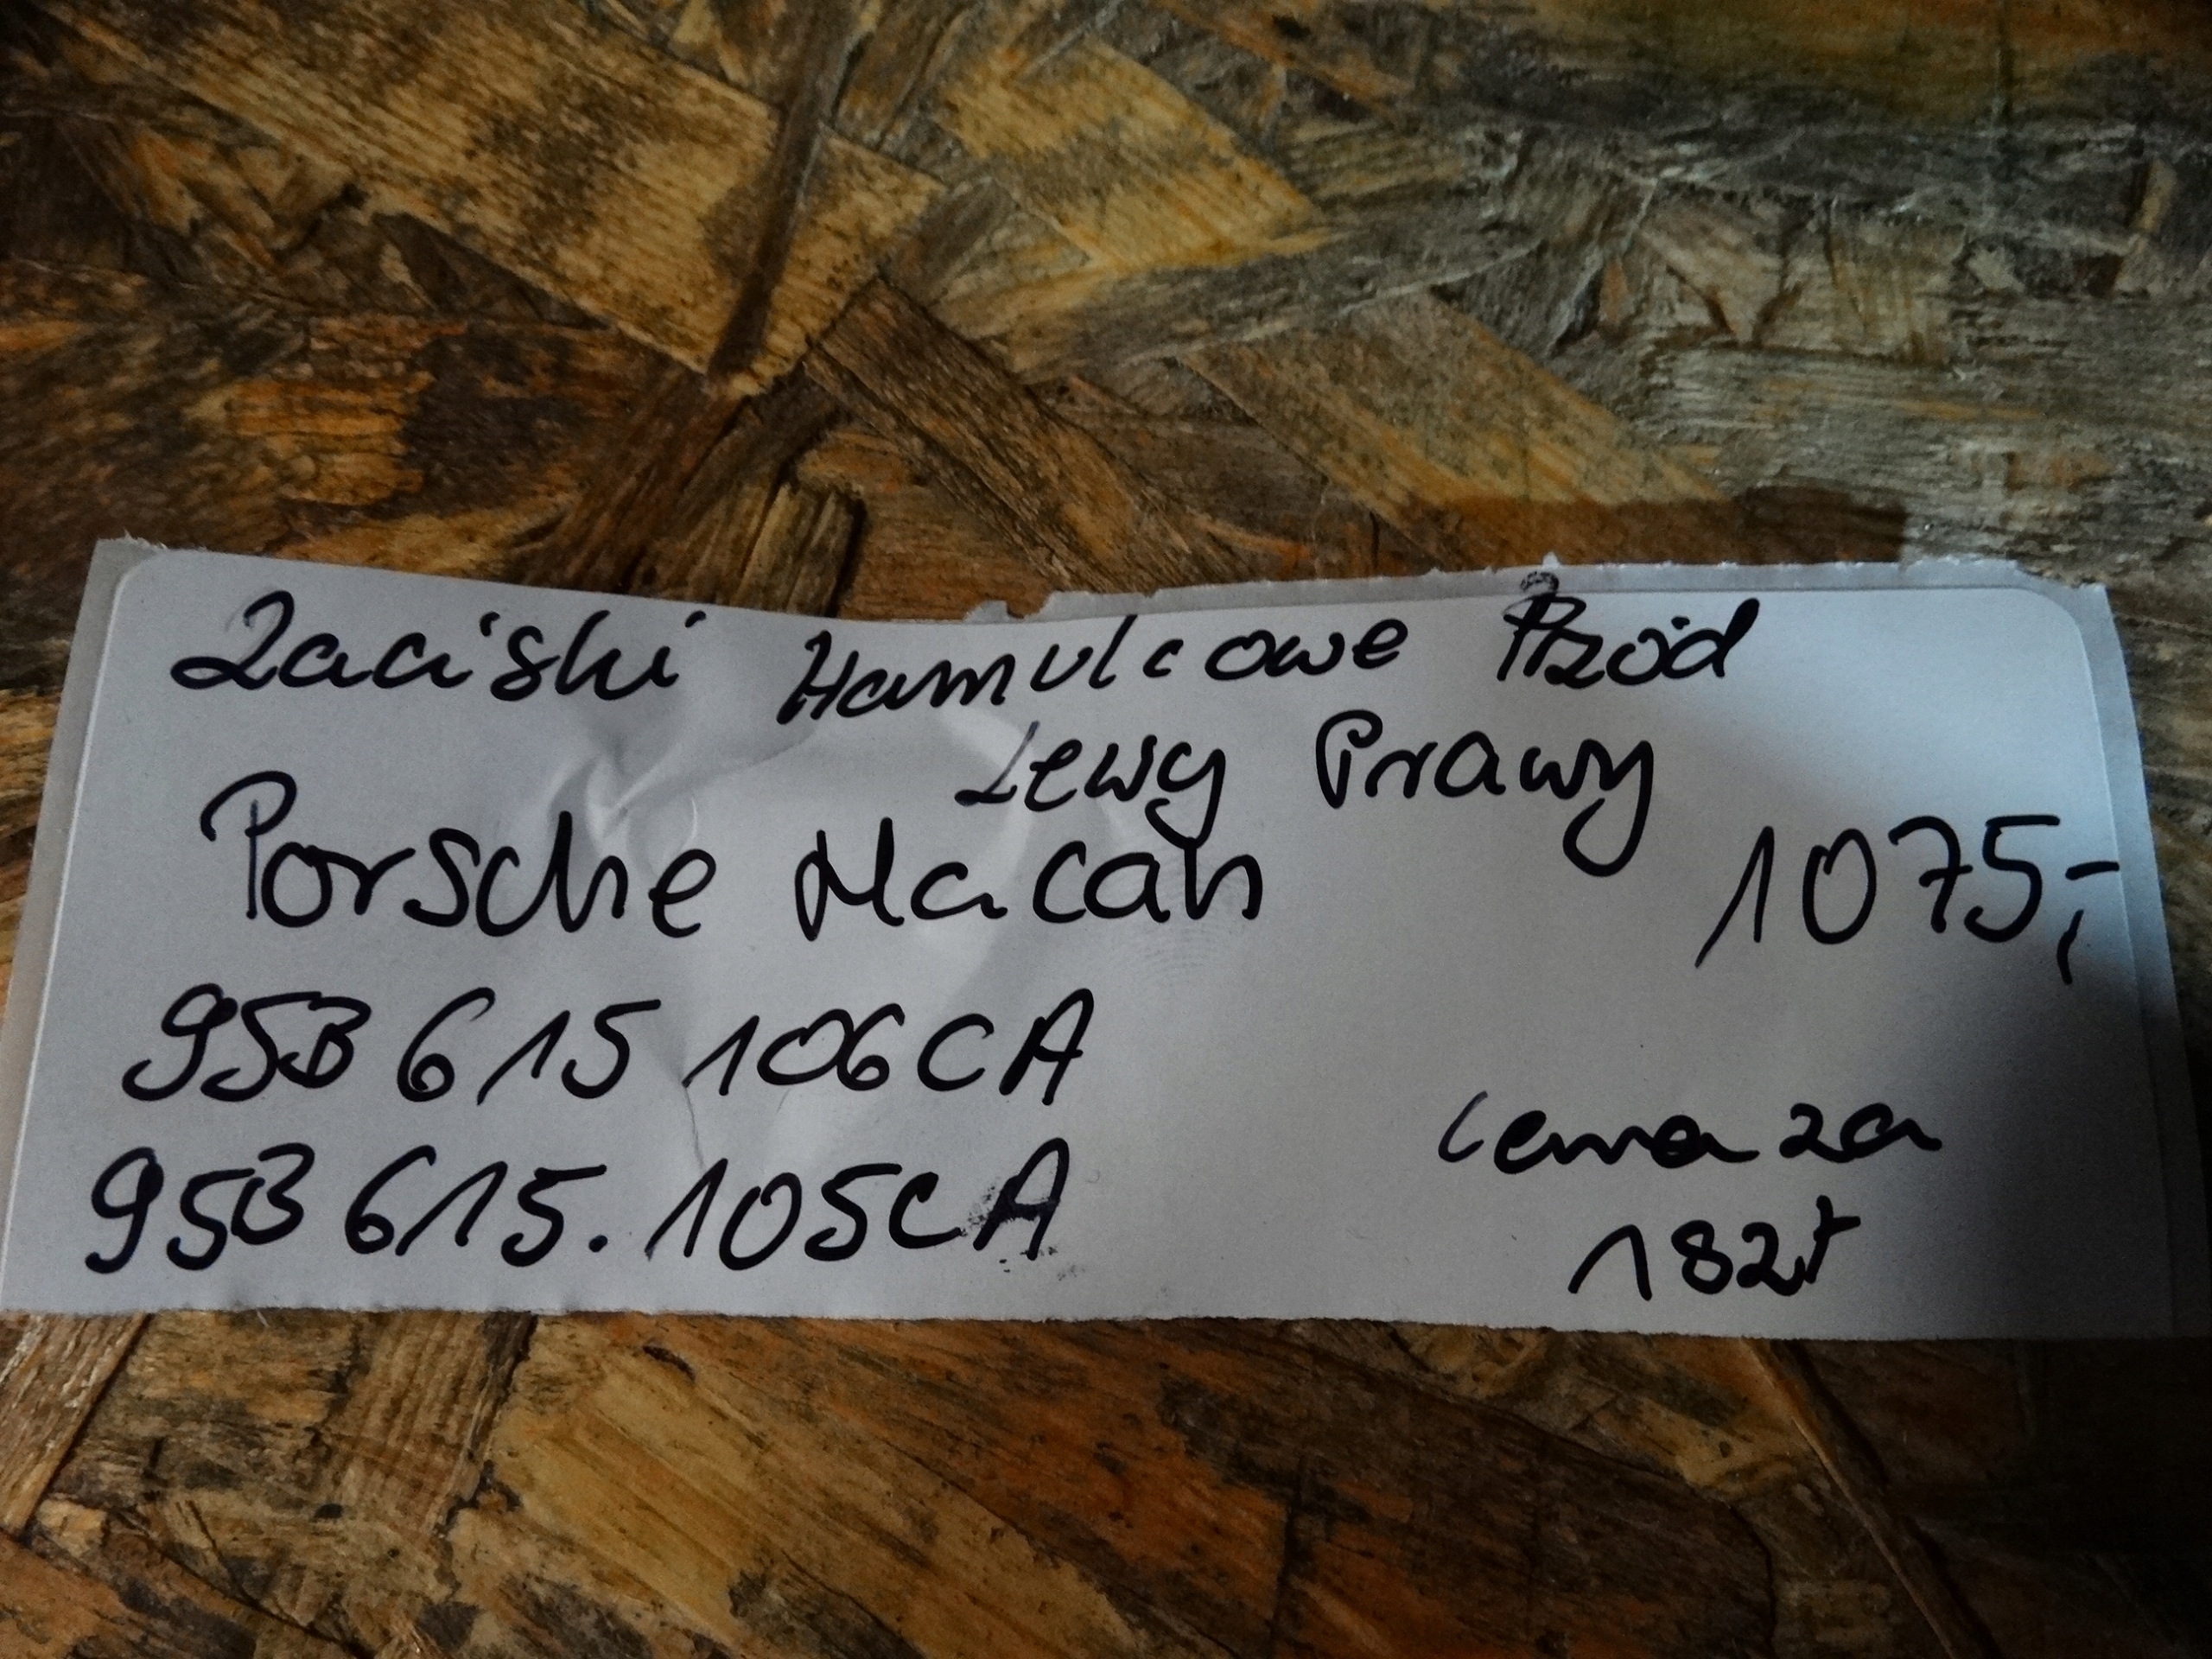 Zaciski Hamulcowe Przód
Lewy Prawy
Porsche Macan
1075,-
95B 615 106CA
95B 615.105CA
Cena za
182t